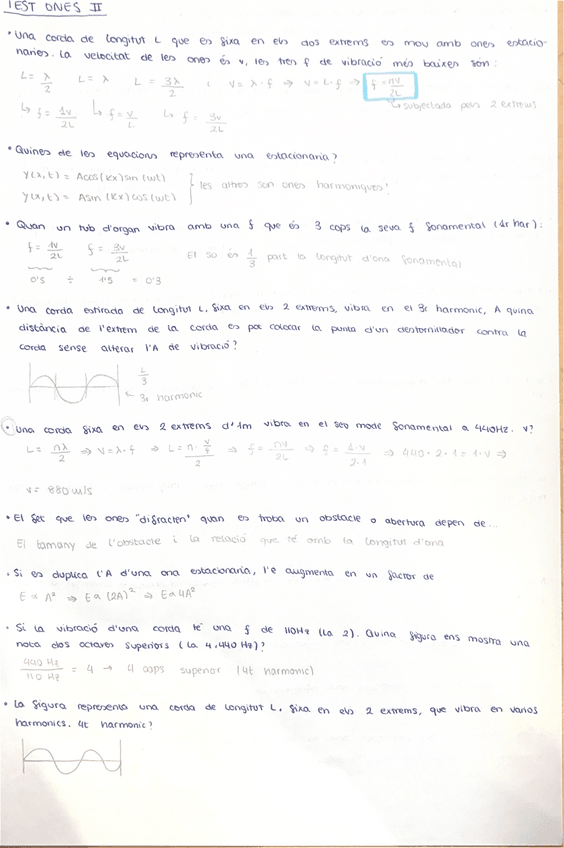 TEST ONES II
• Una corda de longitut L que es fixa en els dos extrems es mou amb ones estacio-
naries. La velocitat de les ones és v, les tres f de vibració més baixes són:
L = λ/2 L = λ L = 3λ/2 : v = λ · f → v = L · f → f = nv/2L
↳ f = 1v/2L ↳ f = v/L ↳ f = 3v/2L ↳ subjectada pels 2 extrems
• Quines de les equacions representa una estacionaria?
Y(x,t) = Acos(Kx)sin(wt)
Y(x,t) = Asin(Kx)cos(wt) } les altres son ones harmoniques!
• Quan un tub d'organ vibra amb una f que és 3 cops la seva f fonamental (1r har):
f = 1v/2L f = 3v/2L El so és 1/3 part la longitut d'ona fonamental
0'5 ÷ 1'5 = 0'3
• Una corda estirada de longitut L, fixa en els 2 extrems, vibra en el 3r harmonic, A quina
distància de l'extrem de la corda es pot colocar la punta d'un destornillador contra la
corda sense alterar l'A de vibració?
L/3
← 3r harmonic
• Una corda fixa en els 2 extrems d'1m vibra en el seu mode fonamental a 440Hz. v?
L = nλ/2 ⇒ v = λ · f ⇒ L = n · v/f / 2 ⇒ f = nv/2L ⇒ f = 1·v/2·1 ⇒ 440 · 2 · 1 = 1 · v ⇒
v = 880 m/s
• El fet que les ones "difracten" quan es troba un obstacle o abertura depen de...
El tamany de l'obstacle i la relació que té amb la longitut d'ona
• Si es duplica l'A d'una ona estacionaria, l'e augmenta en un factor de
E ∝ A² ⇒ E ∝ (2A)² ⇒ E ∝ 4A²
• Si la vibració d'una corda té una f de 110Hz (La 2). Quina figura ens mostra una
nota dos octaves superiors (La 4, 440 Hz)?
440 Hz/110 Hz = 4 → 4 cops superior (4t harmonic)
• La figura representa una corda de longitut L, fixa en els 2 extrems, que vibra en varios
harmonics. 4t harmonic?